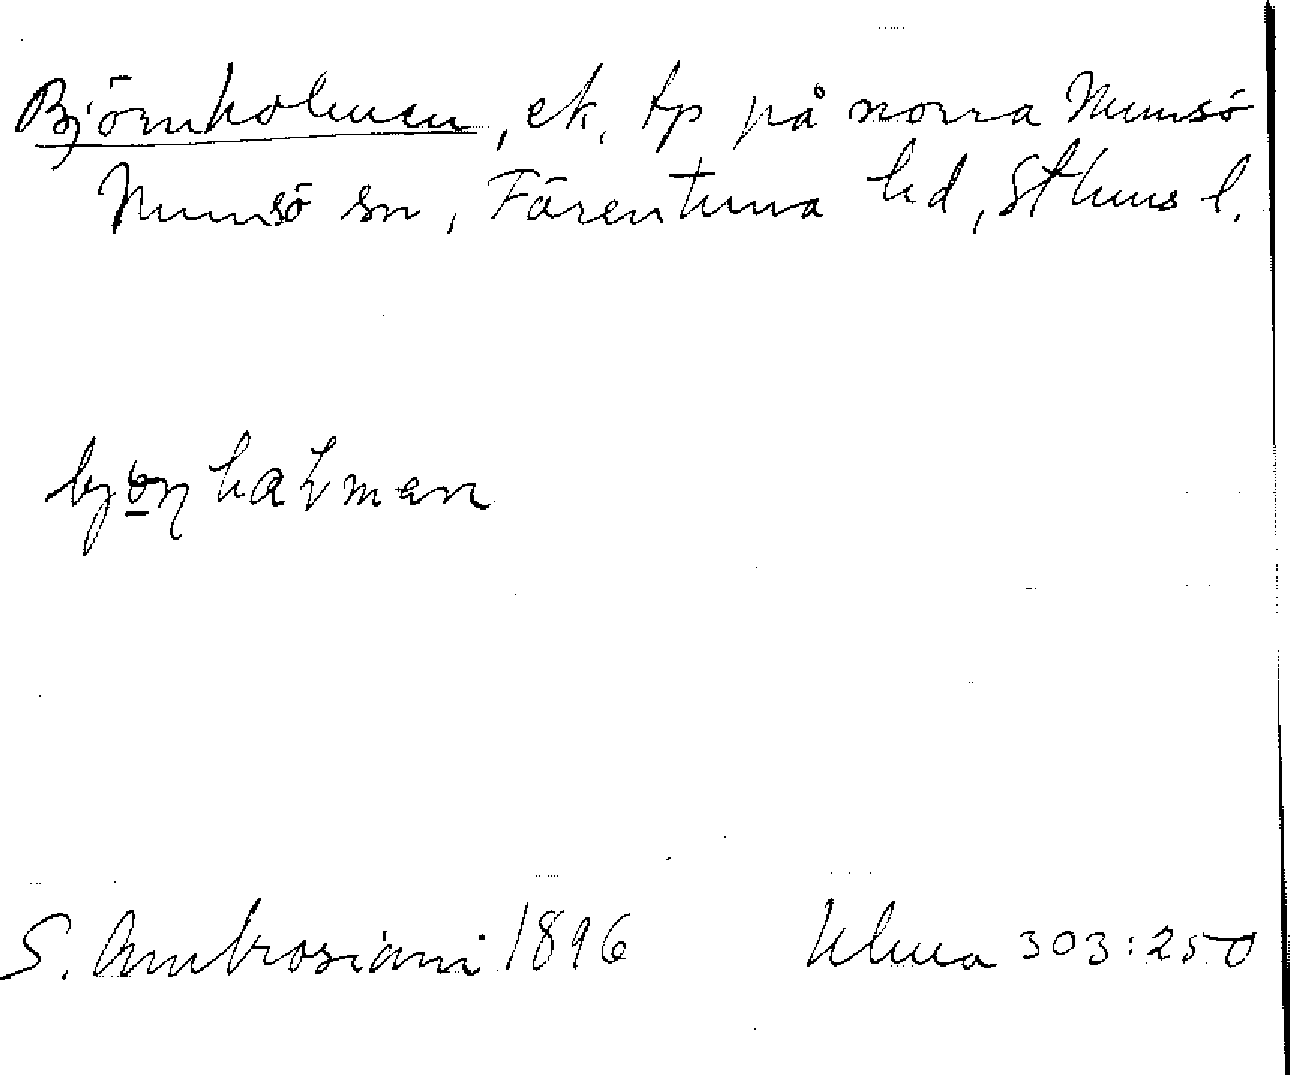 Björnholmen, ek. tp på norra Munsö
Munsö sn, Färentuna hd, Sthms l.
S. Ambrosiani 1896 Ulma 303:250